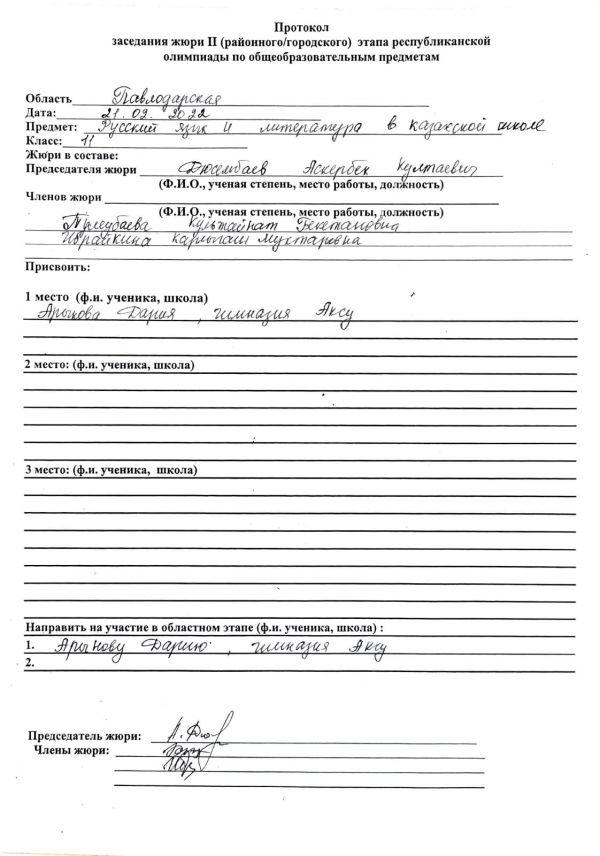 Протокол
заседания жюри II (районного/городского) этапа республиканской
олимпиады по общеобразовательным предметам
Область Павлодарская
Дата: 21.02.2022
Предмет: Русский язык и литература в казахской школе
Класс: 11
Жюри в составе:
Председателя жюри Дюсембаев Аскербек Култаевич
(Ф.И.О., ученая степень, место работы, должность)
Членов жюри
(Ф.И.О., ученая степень, место работы, должность)
Тлеубаева Культайнат Бекетановна
Ибрайкина Карлыгаш Мухтаровна
Присвоить:
1 место (ф.и. ученика, школа)
Арынова Дария, гимназия Аксу
2 место: (ф.и. ученика, школа)
3 место: (ф.и. ученика, школа)
Направить на участие в областном этапе (ф.и. ученика, школа) :
1. Арынову Дарию, гимназия Аксу
2.
Председатель жюри:
Члены жюри: